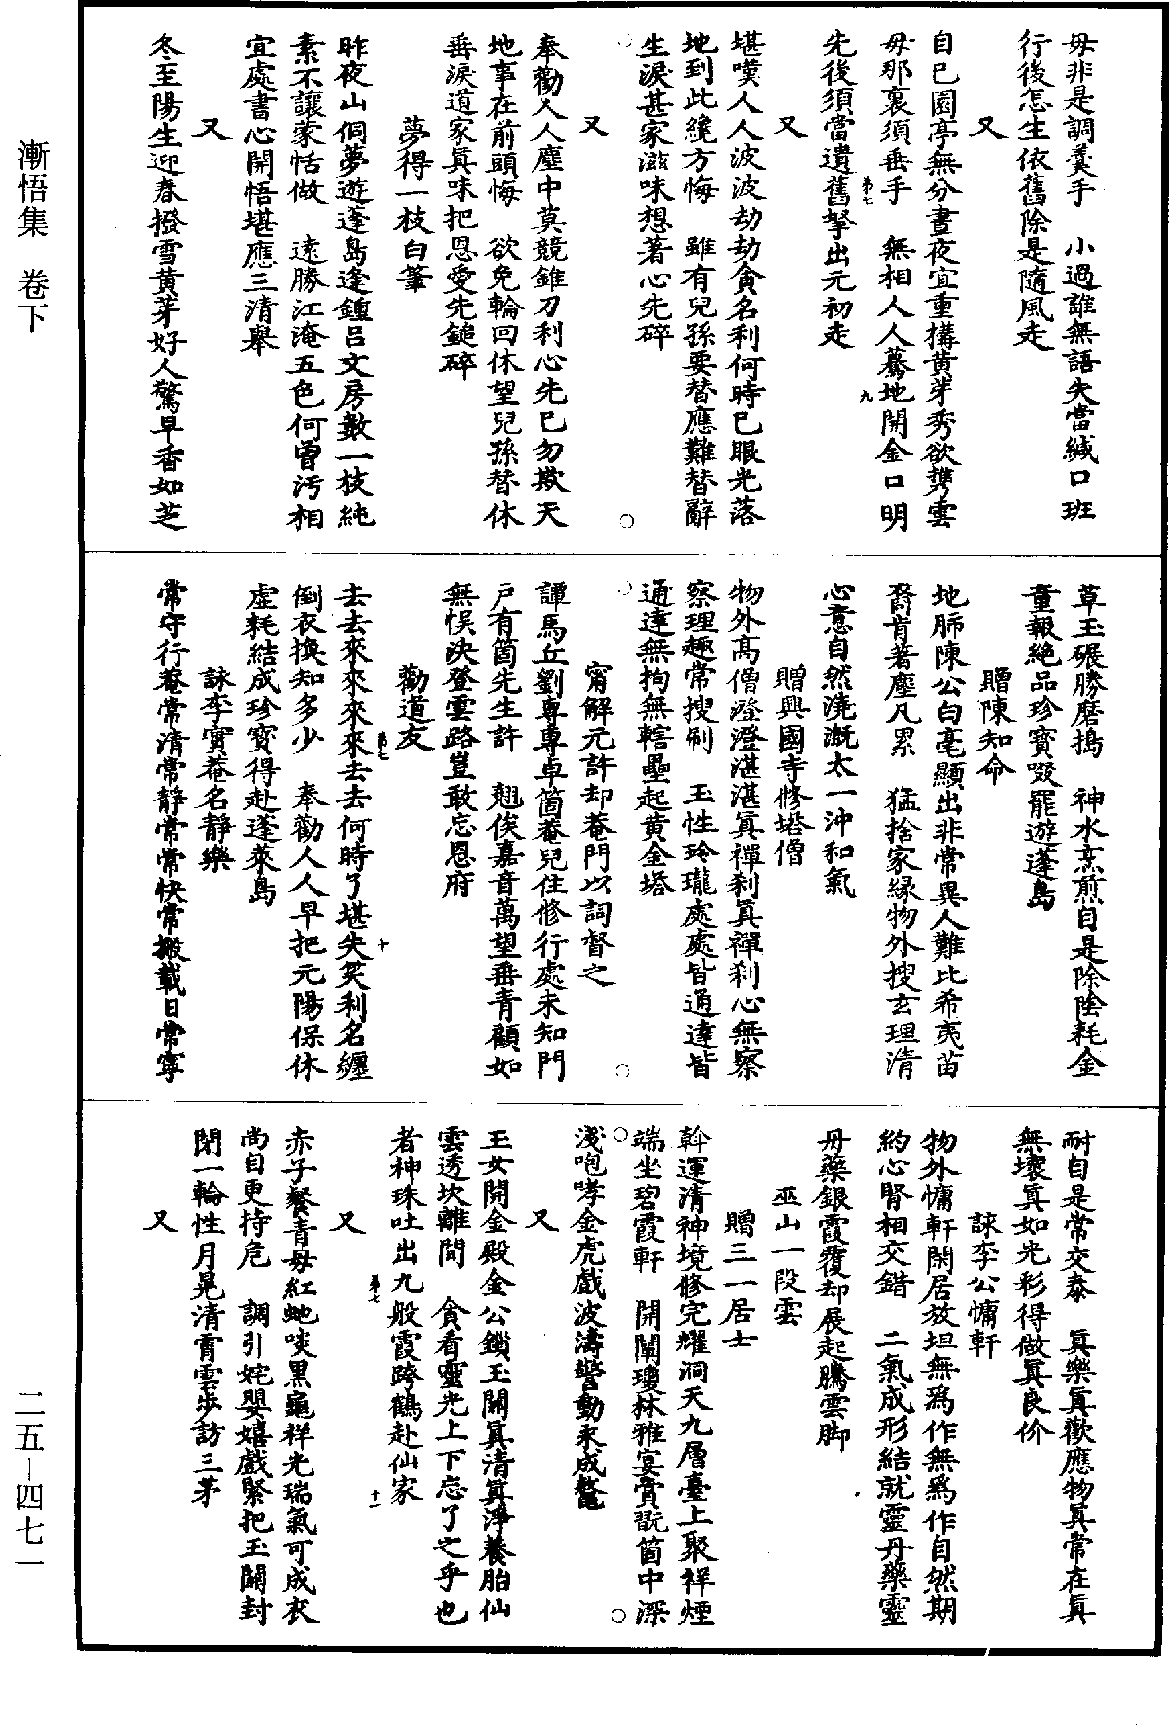 漸悟集　卷下
毋非是調羹手　小過誰無語失當緘口班
行後怎生依舊除是隨風走
又
自已園亭無分晝夜宜重搆黄芽秀欲携雲
毋那裏須垂手　無相人人驀地開金口明
先後須當遺舊拏出元初走
又
堪嘆人人波波劫劫貪名利何時已眼光落
地到此纔方悔　雖有兒孫要替應難替辭
生淚甚家滋味想著心先碎
又
奉勸人人塵中莫競錐刀利心先已勿欺天
地事在前頭悔　欲免輪回休望兒孫替休
垂淚道家眞味把恩愛先鎚碎
夢得一枝白筆
昨夜山侗夢遊蓬島逢鍾吕文房數一枝純
素不讓蒙恬做　遠勝江淹五色何曾汚相
宜處書心開悟堪應三清舉
又
冬至陽生迎春撥雪黄芽好人驚早香如芝
草玉碾勝磨搗　神水烹煎自是除陰耗金
童報絶品珍寶啜罷遊蓬島
贈陳知命
地肺陳公白毫顯出非常異人難比希夷苗
裔肯著塵凡累　猛捨家緣物外搜玄理清
心意自然澆漑太一沖和氣
贈興國寺修塔僧
物外高僧澄澄湛湛眞禪刹眞禪刹心無察
察理趣常搜刷　玉性玲瓏處處皆通達皆
通達無拘無轄壘起黄金塔
甯解元許却菴門以詞督之
譚馬丘劉專專卓箇菴兒住修行處未知門
戸有箇先生許　翹俟嘉音萬望垂青顧如
無悞決登雲路豈敢忘恩府
勸道友
去去來來來來去去何時了堪失笑利名纏
倒衣換知多少　奉勸人人早把元陽保休
虚耗結成珍寶得赴蓬萊島
詠李寶菴名靜樂
常守行菴常清常靜常常快常搬載日常寧
耐自是常交泰　眞樂眞歡應物眞常在眞
無壞眞如光彩得做眞良价
詠李公慵軒
物外慵軒閑居放坦無爲作無爲作自然期
約心腎相交錯　二氣成形結就靈丹藥靈
丹藥銀霞覆却展起騰雲脚
巫山一段雲
贈三一居士
斡運清神境修完耀洞天九層臺上聚祥煙
端坐碧霞軒　開闡瓊林雅宴賞翫箇中深
淺咆哮金虎戲波濤警動永成鼇
又
玉女開金殿金公鎖玉關眞清眞淨養胎仙
雲透坎離間　貪看靈光上下忘了之乎也
者神珠吐出九般霞跨鶴赴仙家
又
赤子餐青母紅虵啖黑龜祥光瑞氣可成衣
尚自更持危　調引姹嬰嬉戲緊把玉關封
閉一輪性月晃清霄雲步訪三茅
又
第七
九
第七
十
第七
十一
二五—四七一